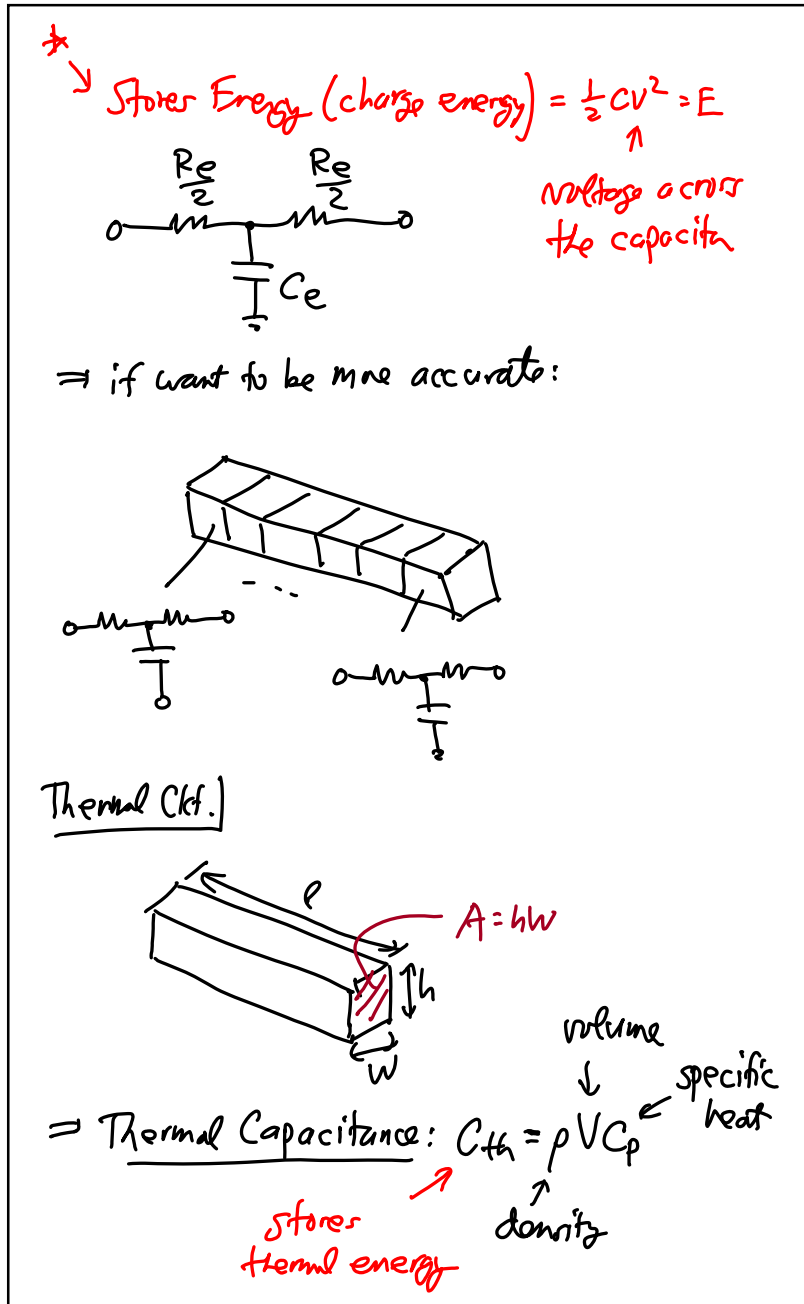 *
Stores Energy (charge energy) = ½ CV² = E
voltage across
the capacitor
Re/2 Re/2
Ce
⇒ if want to be more accurate:
- . .
Thermal Ckt.
l
A = hW
h
W
volume
specific
heat
⇒ Thermal Capacitance: Cth = ρVCp
density
stores
thermal energy